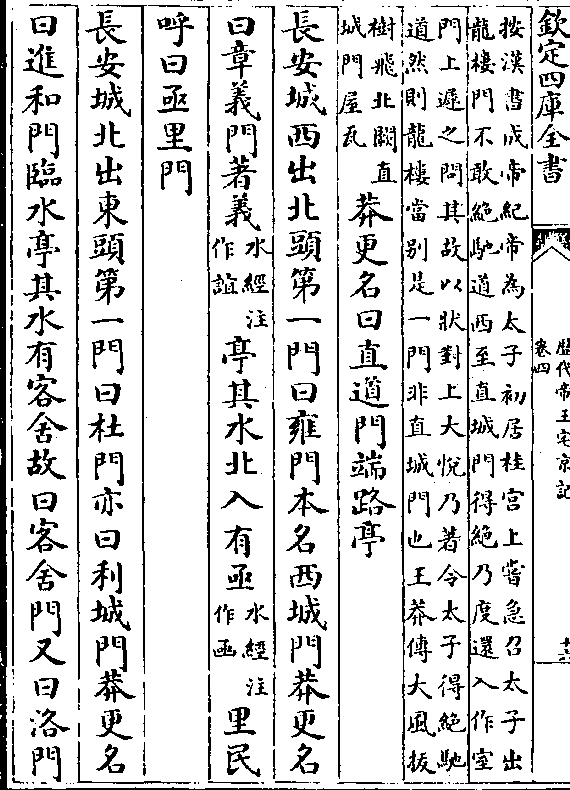 欽定四庫全書
歴代帝王宅京記
卷四
十三
按漢書成帝紀帝為太子初居桂宫上嘗急召太子出
龍樓門不敢絶馳道西至直城門得絶乃度還入作室
門上遲之問其故以狀對上大悦乃著令太子得絶馳
道然則龍樓當别是一門非直城門也王莽傳大風拔
樹飛北闕直
城門屋瓦
莽更名曰直道門端路亭
長安城西出北頭第一門曰雍門本名西城門莽更名
曰章義門著義水經注作誼亭其水北入有函水經注作函里民
呼曰函里門
長安城北出東頭第一門曰杜門亦曰利城門莽更名
曰進和門臨水亭其水有客舍故曰客舍門又曰洛門